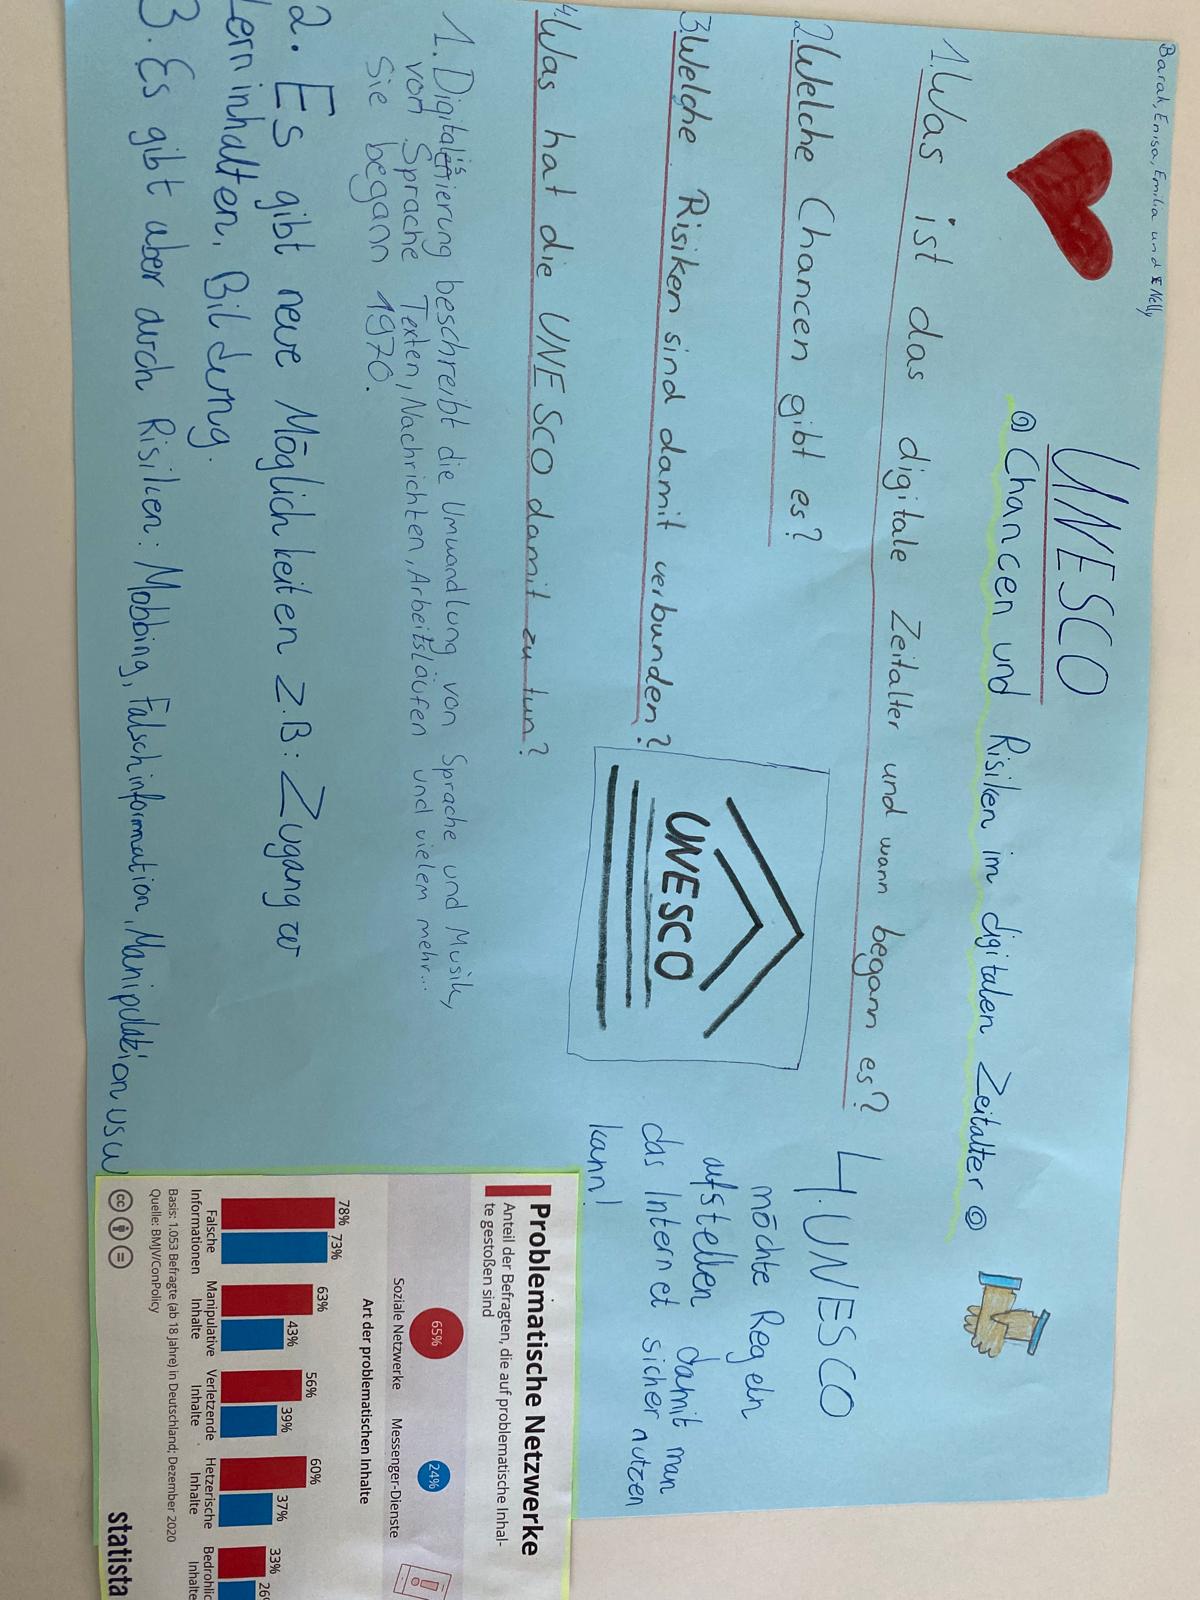 Barah, Enisa, Emilia und Nelly
UNESCO
Chancen und Risiken im digitalen Zeitalter
1. Was ist das digitale Zeitalter und wann begann es?
2. Welche Chancen gibt es?
3. Welche Risiken sind damit verbunden?
4. Was hat die UNESCO damit zu tun?
UNESCO
1. Digitalisierung beschreibt die Umwandlung von Sprache und Musik,
von Sprache Texten, Nachrichten, Arbeitsläufen und vielem mehr...
Sie begann 1970.
2. Es gibt neue Möglichkeiten z.B: Zugang
Lerninhalten, Bildung.
3. Es gibt aber auch Risiken: Mobbing, Falschinformation, Manipulation usw
4. UNESCO
möchte Regeln
aufstellen damit man
das Internet sicher nutzen
kann!
Problematische Netzwerke
Anteil der Befragten, die auf problematische Inhal-
te gestoßen sind
65% 24%
Soziale Netzwerke Messenger-Dienste
Art der problematischen Inhalte
78% 73% 63% 43% 56% 39% 60% 37% 33%
Falsche Manipulative Verletzende Hetzerische Bedrohlic
Informationen Inhalte Inhalte Inhalte Inhalte
Basis: 1.053 Befragte (ab 18 Jahre) in Deutschland; Dezember 2020
Quelle: BMJV/ConPolicy
cc
statista